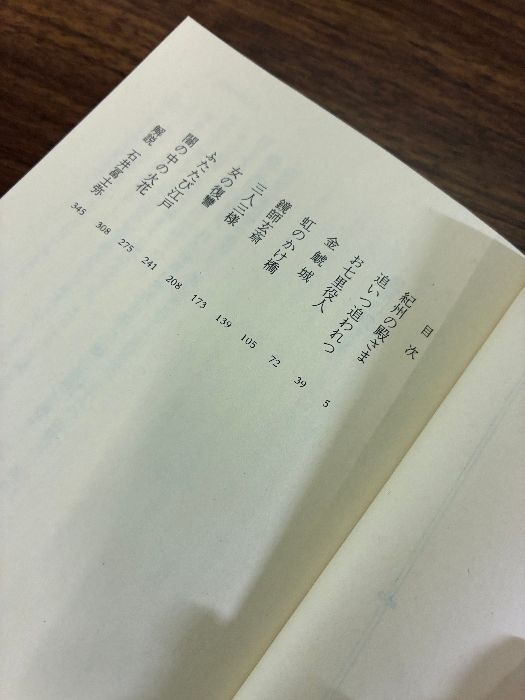 目次
紀州の殿さま 5
追いつ追われつ 39
お七里役人 72
金鯱城 105
虹のかけ橋 139
鏡師玄斎 173
三人三様 208
女の復讐 241
ふたたび江戸 275
闇の中の火花 308
解説 石井冨士弥 345